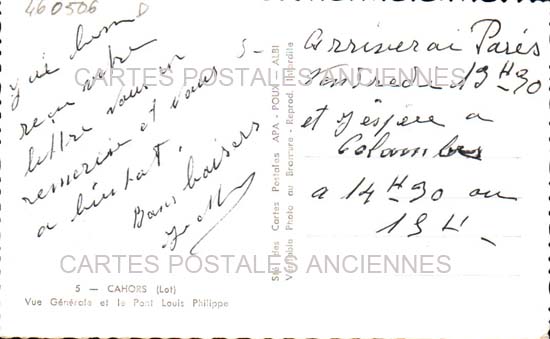 460506 D
J'ai bien
reçu votre
lettre vous en
remercie et vous
a bientôt
Bons baisers
5 -
Arriverai Paris
Vendredi 13H30
et j'espère a
Colombes
a 14H30 ou
15H.
CARTES POSTALES ANCIENNES
CARTES POSTALES ANCIENNES
Sté des Cartes Postales APA - POUX - ALBI
Véritable Photo au Bromure - Reprod. Interdite
5 — CAHORS (Lot)
Vue Générale et le Pont Louis Philippe